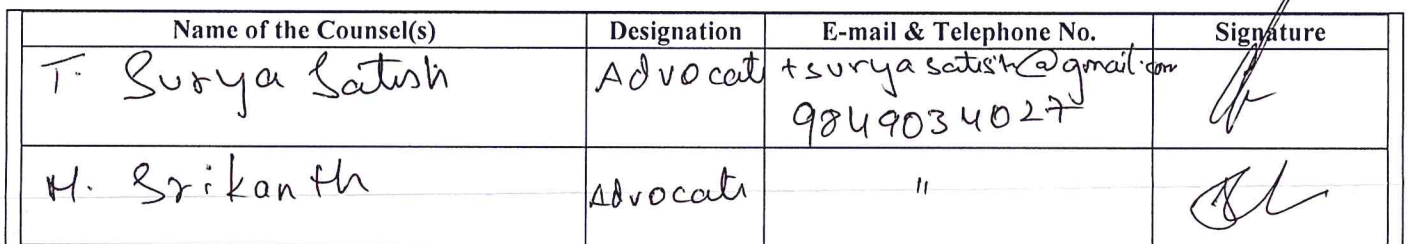 Name of the Counsel(s) Designation E-mail & Telephone No. Signature
T. Surya Satish Advocat tsuryasatish@gmail.com
9849034027
M. Srikanth Advocate "